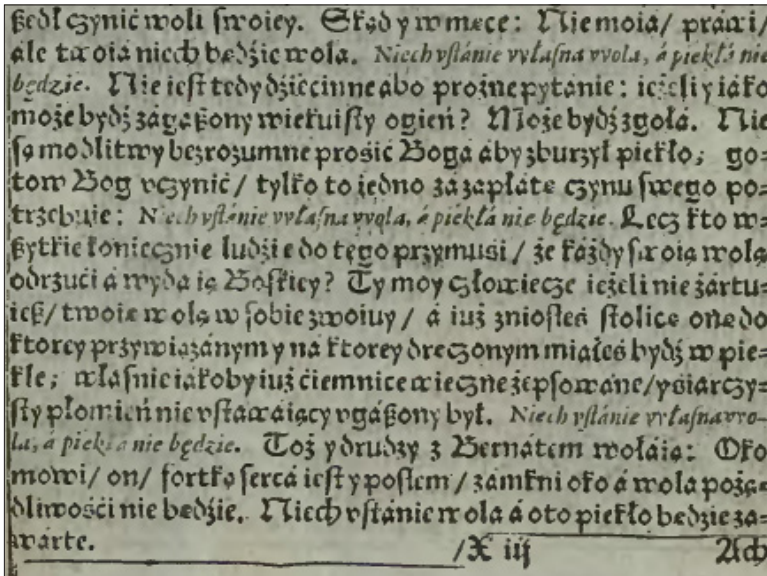 ßedł czynić woli swoiey. Skąd y w męce: Nie moia/ práwi/
ale twoiá niech będźie wola. Niech vstánie vvłasna vvola, á piekłá nie
będzie. Nie iest tedy dźiecinne abo prożne pytánie: ieżeli y iáko
może bydź zágaßony wiekuisty ogień? Może bydź zgołá. Nie
są modlitwy bezrozumne prosić Bogá áby zburzył piekło; go=
tow Bog vczynić/ tylko to iedno zá zapłatę czynu swego po=
trzebuie: Niech vstánie vvłasna vvola, á piekłá nie będzie. Lecz kto w=
ßytkie koniecznie ludźie do tego przymusi/ że káżdy swoię wolą
odrzući á wyda ią Boskiey? Ty moy człowiecze ieżeli nie żártu=
ieß/ twoię wolą w sobie zwoiuy/ á iuż zniosłeś stolicę onę do
ktorey przywiązánym y ná ktorey dręczonym miałeś bydź w pie=
kle; właśnie iákoby iuż ćiemnice wieczne zepsowáne/ y śiárczy=
sty płomień nie vstawáiący vgáßony był. Niech vstánie vvłasna vvo-
la, á piekłá nie będzie. Toż y drudzy z Bernatem wołáią: Oko
mowi/ on/ fortką sercá iest y posłem/ zámkni oko á wola pożą=
dliwośći nie będźie. Niech vstánie wola á oto piekło będźie zá=
wárte. /X iij Ach